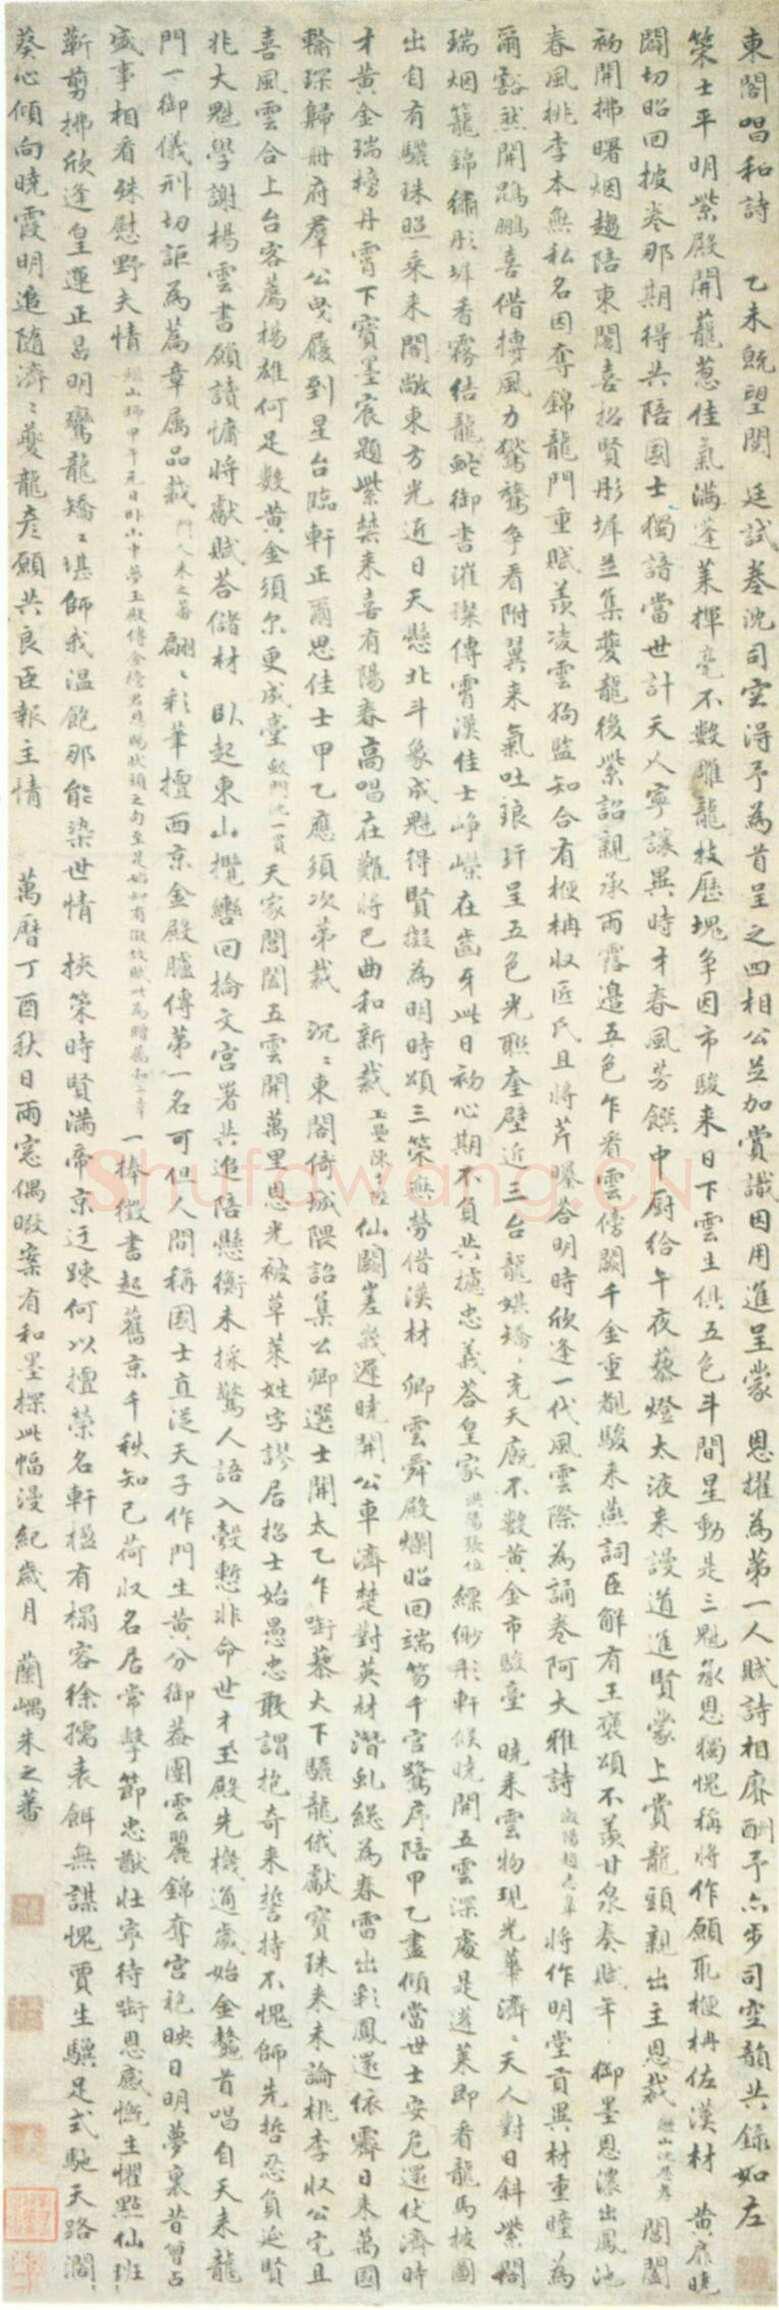 東閣唱和詩 乙未既望閱 廷試卷沈司空得予為首呈之四相公並加賞識因用進呈蒙 恩擢為第一人賦詩相賡酬予亦步司空韻共錄如左
築士平明紫殿開蘢蔥佳氣滿蓬萊揮毫不數雕龍技歷塊爭因市駿來日下雲生俱五色斗間星動是三魁承恩獨愧稱將作願取楩枏佐漢材 黃扉曉
闢切昭回披卷那期得共陪國士獨諳當世計天人寧讓異時才春風芳饌中廚給午夜藜燈太液來謾道進賢蒙上賞龍頭親出主恩裁 閶闔
初開拂曙烟趨陪東閣喜招賢彤墀並集夔龍後紫詔親承雨露邊五色乍看雲傍闕千金重覩駿来燕詞臣解有王褒頌不羨甘泉奏賦年 御墨恩濃出鳳池
春風桃李本無私名因奪錦龍門重賦羨凌雲狗監知合有楩枏收匠氏且將芹曝荅明時欣逢一代風雲際為誦卷阿大雅詩 將作明堂貢異材重瞳為
爾豁然開鵾鵬喜借摶風力鸑鷟爭看附翼来氣吐琅玕呈五色光聯奎壁近三台龍媒矯矯充天廄不數黃金市駿臺 曉来雲物現光華濟濟天人對日斜紫閣
瑞烟籠錦繡彤墀香霧結龍蛇御書漼璨傳霄漢佳士崢嶸在齒牙此日初心期不負共攄忠義荅皇家 洪陽張位 縹緲彤軒候曉開五雲深處是蓬萊即看龍馬披圖
出自有驪珠照乘来閣敞東方光近日天懸北斗象成魁得賢擬為明時頌三策無勞借漢材 卿雲舜殿爛昭回端笏千官鷺序陪甲乙盡傾當世士安危還仗濟時
才黃金瑞榜丹霄下寶墨宸題紫禁来喜有陽春高唱在難將巴曲和新裁 仙闕差㟧遲曉開公車濟楚對英材潛虬總為春雷出彩鳳還依霽日来萬國
輪琛歸冊府羣公曳履到星台臨軒正爾思佳士甲乙應須次第裁 沉沉東閣倚城隈詔集公卿選士開太乙乍𠾑藜火下驪龍俄獻寶珠来未論桃李收公宅且
喜風雲合上台客薦楊雄何足數黃金須尔更成臺 天家閶闔五雲開萬里恩光被草萊姓字謬居招士始愚忠敢謂抱奇来誓持不愧師先哲忍負延賢
兆大魁學謝楊雲書願讀慵將獻賦荅儲材 臥起東山攬轡回掄文宮署共追陪懸衡未採驚人語入彀慙非命世才玉殿先機通歲始金鰲首唱自天来龍
門一御儀刑切詎為篇章屬品裁 門人朱之蕃 翩翩彩筆擅西京金殿臚傳第一名可但人間稱國士直從天子作門生黃分御蓋團雲麗錦奪宮袍映日明夢裏昔曾占
盛事相看殊慰野夫情 一捧徵書起舊京千秋知己荷收名居常擊節忠猷壯寧待銜恩感慨生懼點仙班
蘄剪拂欣逢皇運正昌明鸞龍矯矯堪師我溫飽那能染世情 挾策時賢滿帝京迂踈何以擅榮名軒楹有榻容徐孺表餌無謀愧賈生驥足式馳天路濶
葵心傾向曉霞明追隨濟濟夔龍彥願共良臣報主情 萬曆丁酉秋日雨窓偶暇案有和墨探此幅漫紀歲月 蘭嵎朱之蕃
Shufawang.CN